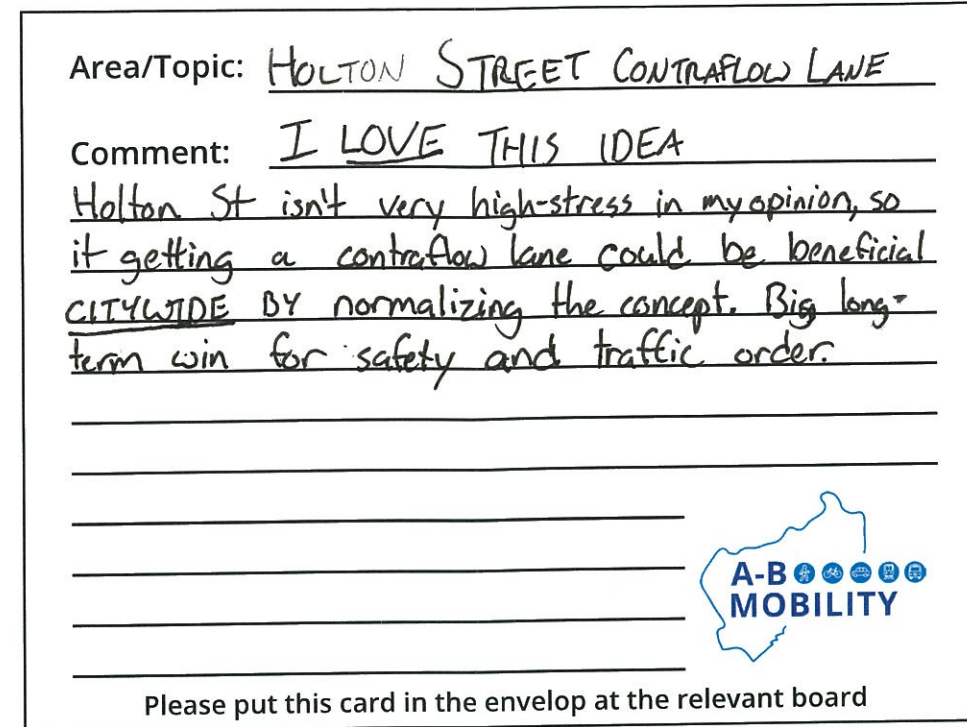 Area/Topic: HOLTON STREET CONTRAFLOW LANE
Comment: I LOVE THIS IDEA
Holton St isn't very high-stress in my opinion, so
it getting a contraflow lane could be beneficial
CITYWIDE BY normalizing the concept. Big long-
term win for safety and traffic order.
A-B
MOBILITY
Please put this card in the envelop at the relevant board